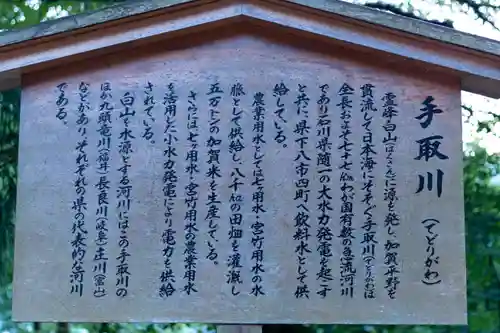 手取川（てどりがわ）
霊峰白山（はくさん）に源を発し、加賀平野を
貫流して日本海にそそぐ手取川（てどりがわ）は
全長およそ七十七㎞わが国有数の急流河川
であり石川県随一の大水力発電を起こす
と共に、県下八市四町へ飲料水として供
給している。
農業用水としては七用水・宮竹用水の水
脈として供給し、八千㌶の田畑を灌漑し
五万㌧の加賀米を生産している。
さらには七ヶ用水・宮竹用水の農業用水
を活用した小水力発電により電力も供給
されている。
白山を水源とする河川にはこの手取川の
ほか九頭竜川（福井）長良川（岐阜）庄川（富山）
などがあり、それぞれの県の代表的な河川
である。